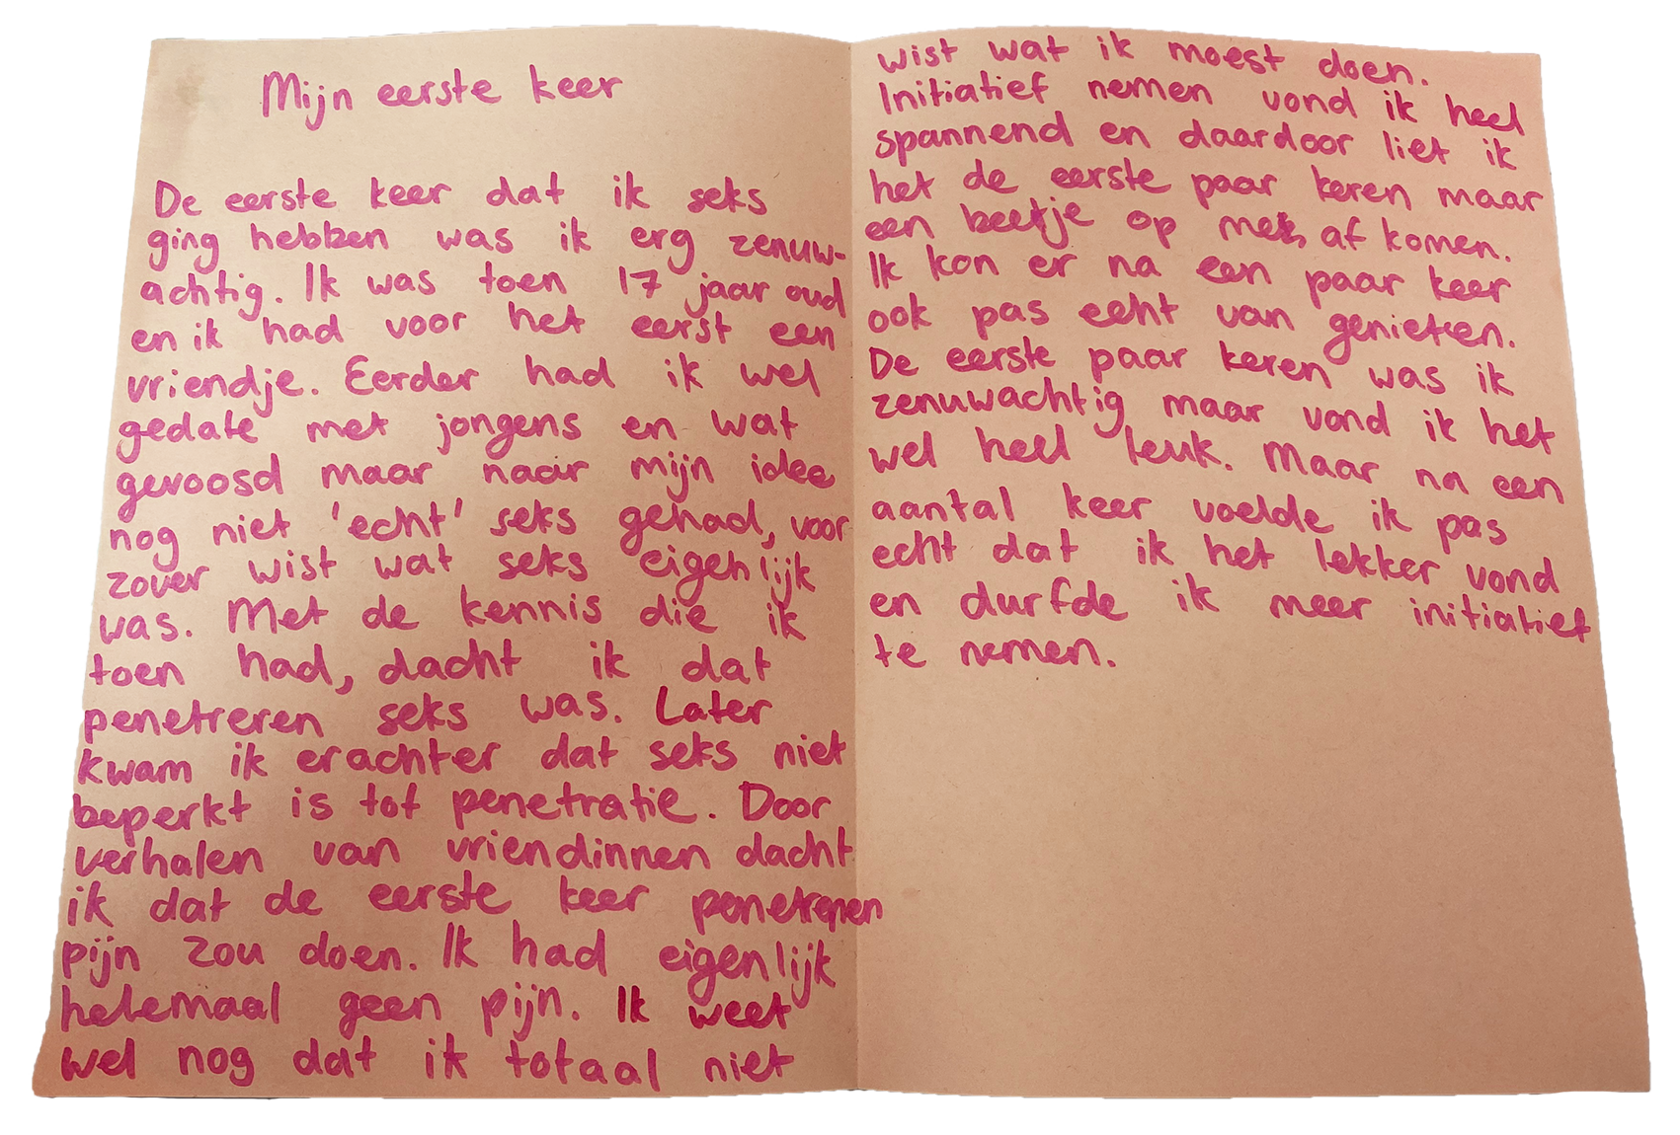 Mijn eerste keer
De eerste keer dat ik seks
ging hebben was ik erg zenuw-
achtig. Ik was toen 17 jaar oud
en ik had voor het eerst een
vriendje. Eerder had ik wel
gedate met jongens en wat
gevoosd maar naar mijn idee
nog niet 'echt' seks gehad, voor
zover wist wat seks eigenlijk
was. Met de kennis die ik
toen had, dacht ik dat
penetreren seks was. Later
kwam ik erachter dat seks niet
beperkt is tot penetratie. Door
verhalen van vriendinnen dacht
ik dat de eerste keer penetreren
pijn zou doen. Ik had eigenlijk
helemaal geen pijn. Ik weet
wel nog dat ik totaal niet
wist wat ik moest doen.
Initiatief nemen vond ik heel
spannend en daardoor liet ik
het de eerste paar keren maar
een beetje op me af komen.
Ik kon er na een paar keer
ook pas echt van genieten.
De eerste paar keren was ik
zenuwachtig maar vond ik het
wel heel leuk. Maar na een
aantal keer voelde ik pas
echt dat ik het lekker vond
en durfde ik meer initiatief
te nemen.